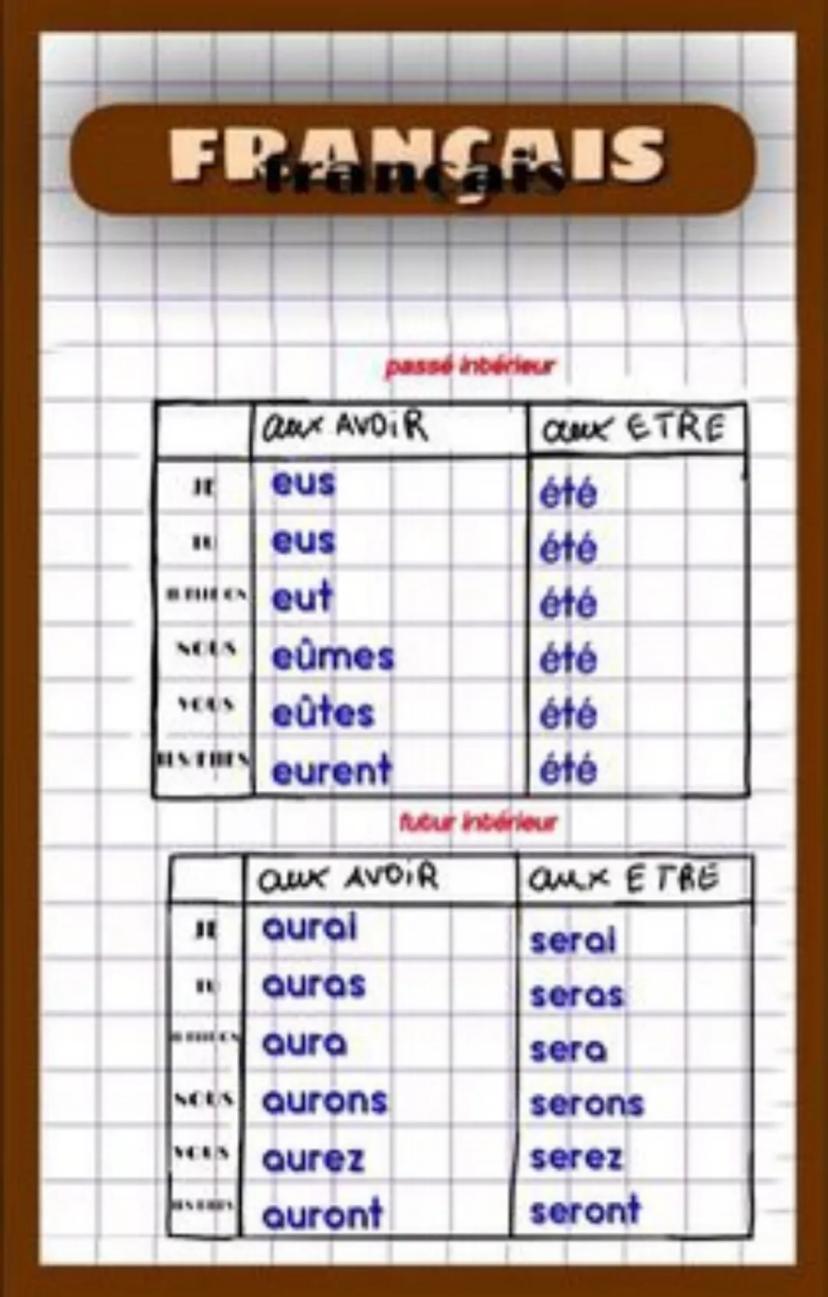 FRANÇAIS
français
passé intérieur
aux AVOIR aux ETRE
JE eus été
TU eus été
eut été
NOUS eûmes été
VOUS eûtes été
ILS/ELLES eurent été
futur intérieur
aux AVOIR aux ETRE
JE aurai serai
TU auras seras
aura sera
NOUS aurons serons
VOUS aurez serez
ILS/ELLES auront seront